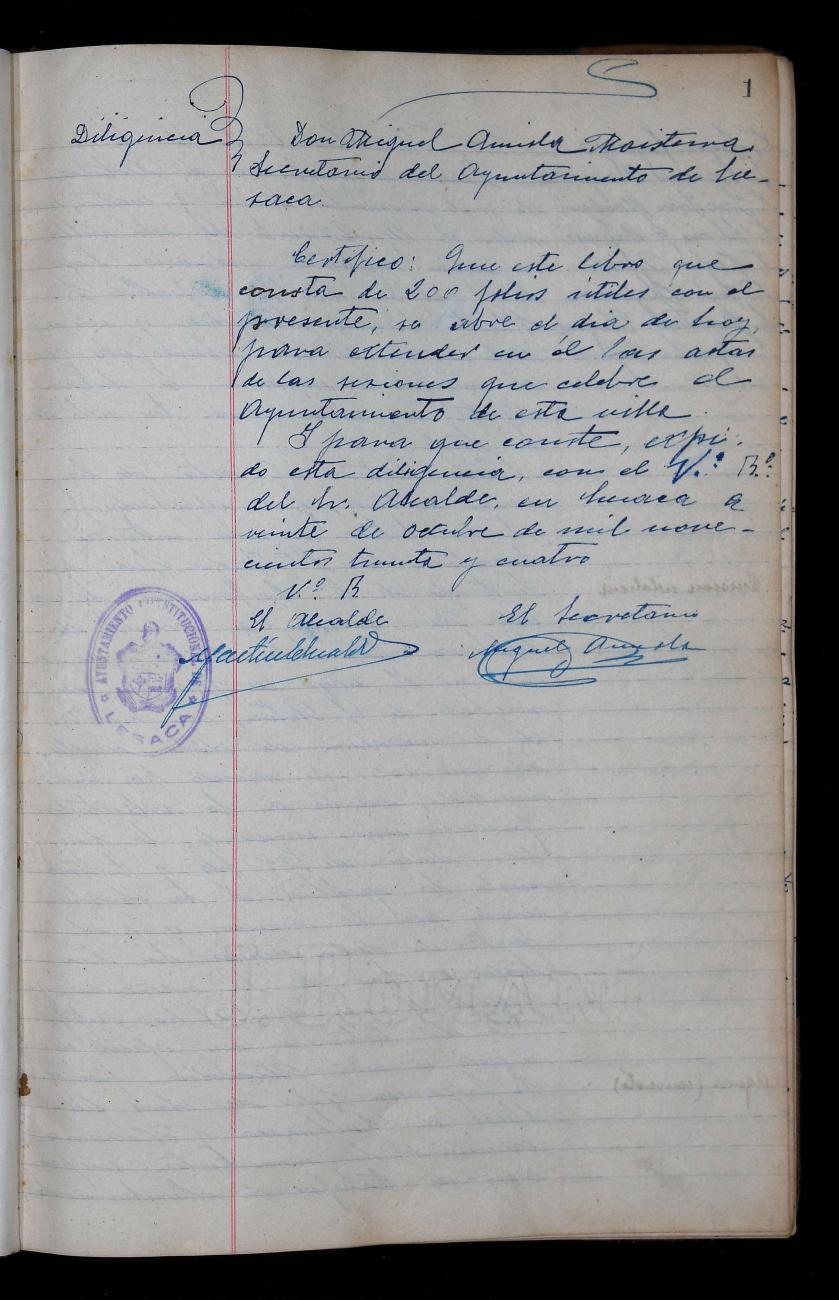 1
Diligencia
Don Miguel
Secretario del Ayuntamiento de Le-
saca.
Certifico: Que este libro que
consta de 200 folios útiles con el
presente, se abre el dia de hoy,
para extender en él las actas
de las sesiones que celebre el
Ayuntamiento de esta villa.
Y para que conste, expi-
do esta diligencia, con el V.º B.º
del Sr. Alcalde, en Lesaca a
veinte de octubre de mil nove-
cientos treinta y cuatro
V.º B.
El Alcalde El Secretario
Miguel
AYUNTAMIENTO CONSTITUCIONAL DE
LESACA